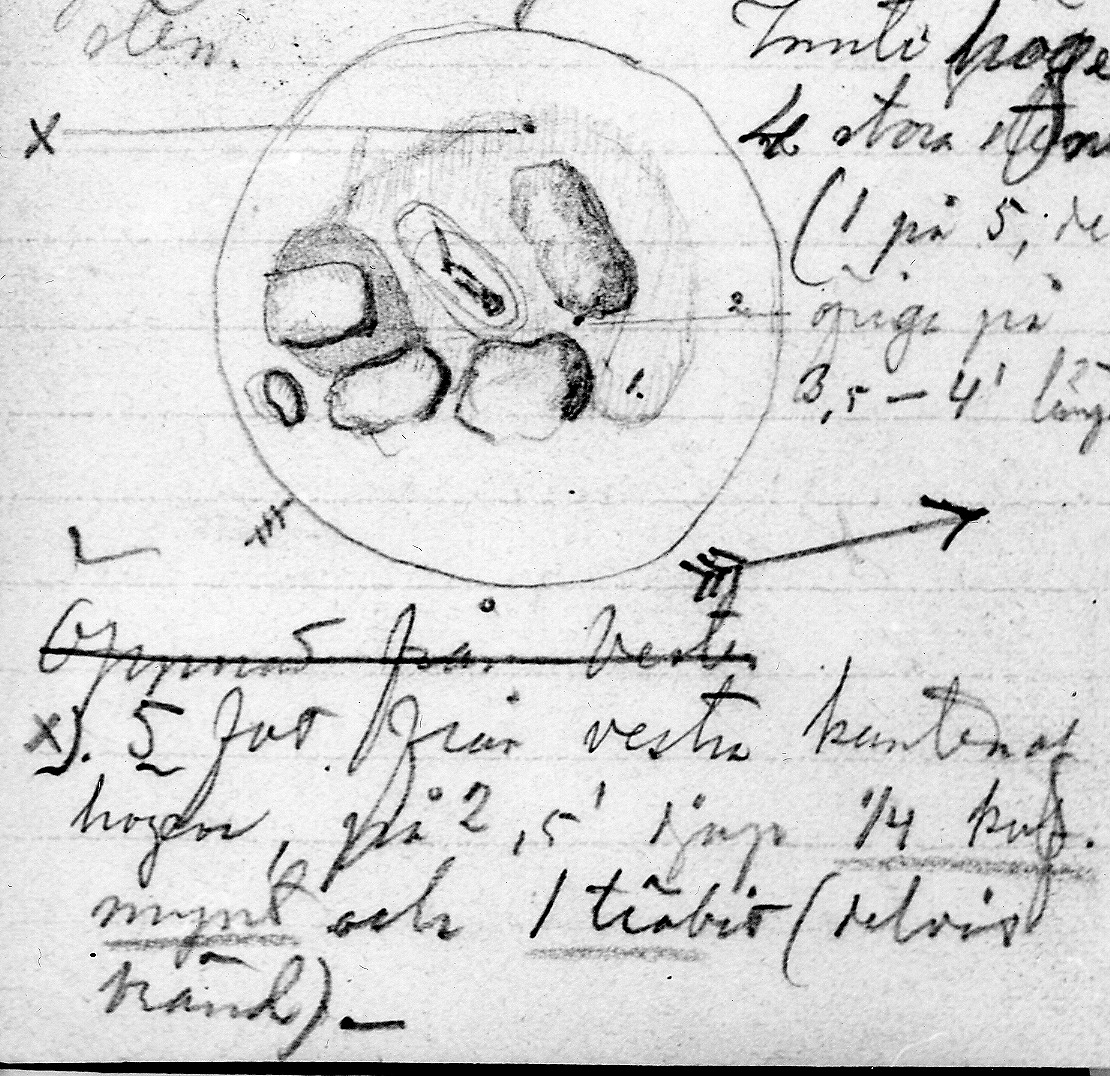 sten.
Inuti höge
X
4 stora sten
(1 på 5, de
2.
öfriga på
1.
3,5 – 4' läng
Öppnad från vester
x). 5 fot från vestra kanten af
högen, på 2,5' djup 1/4 kuf.
mynt och 1 träbit (delvis
bränd). —